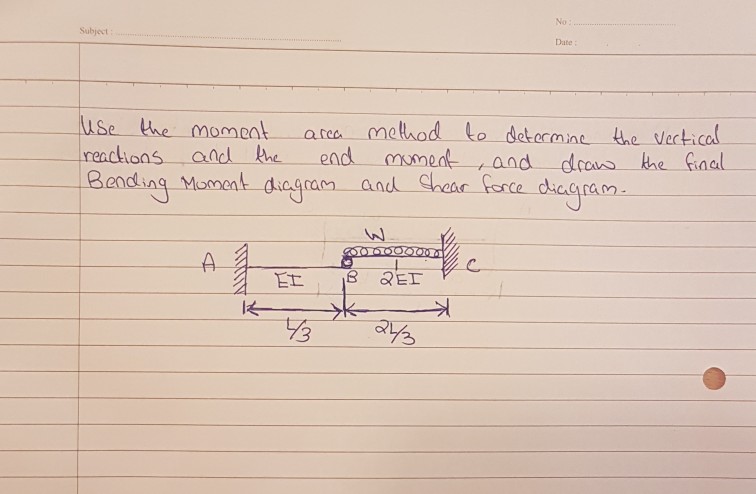 No :
Subject :
Date :
Use the moment area method to determine the vertical
reactions and the end moment, and draw the final
Bending Moment diagram and Shear force diagram.
W
A
C
EI
B
2EI
L/3
2L/3